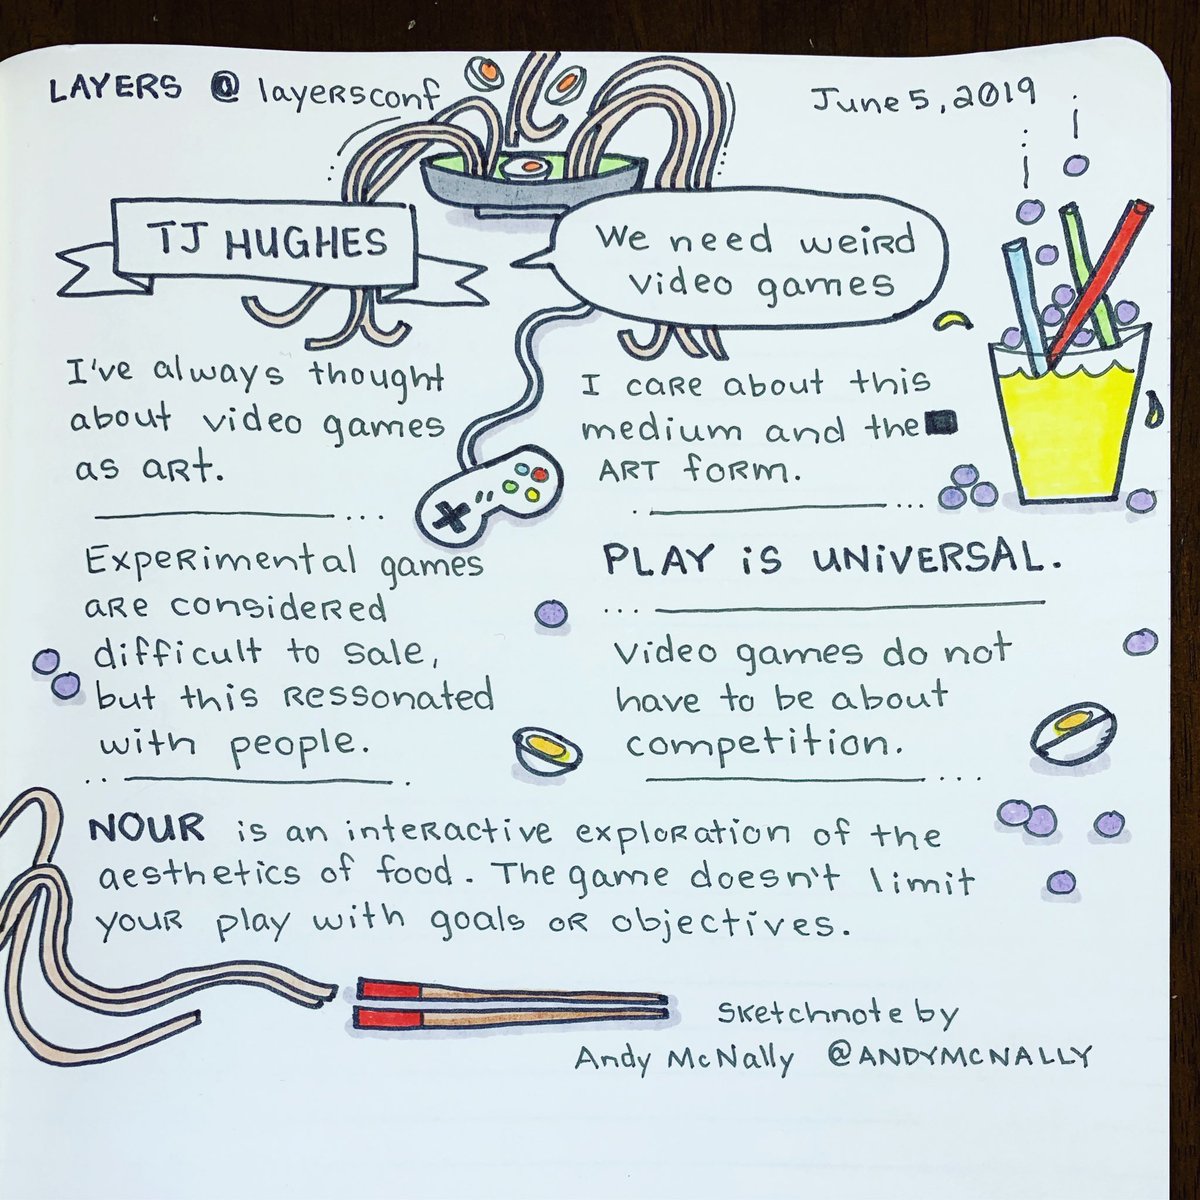 LAYERS @ layersconf
June 5, 2019
TJ HUGHES
We need weird
video games
I've always thought
about video games
as art.
I care about this
medium and the
ART form.
Experimental games
are considered
difficult to sale,
but this ressonated
with people.
PLAY iS UNiVERSAL.
Video games do not
have to be about
competition.
NOUR is an interactive exploration of the
aesthetics of food. The game doesn't limit
your play with goals or objectives.
Sketchnote by
Andy McNally @ANDYMCNALLY